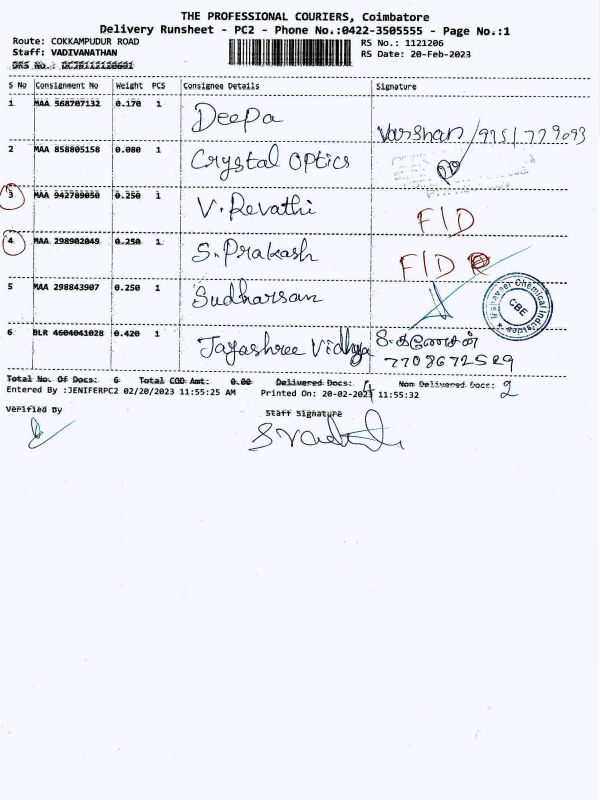 THE PROFESSIONAL COURIERS, Coimbatore
Delivery Runsheet - PC2 - Phone No.:0422-3505555 - Page No.:1
Route: COKKAMPUDUR ROAD RS No.: 1121206
Staff: VADIVANATHAN RS Date: 20-Feb-2023
DRS No.:
S No Consignment No Weight PCS Consignee Details Signature
1 MAA 568707132 0.170 1 Deepa Varshan
2 MAA 858805158 0.080 1 Crystal Optics
3 MAA 942789050 0.250 1 V. Revathi F/D
4 MAA 298902049 0.250 1 S. Prakash F/D
5 MAA 298843907 0.250 1 Sudharsan
Mahaveer Chemical Industries CBE
6 BLR 4604041028 0.420 1 Jayashree Vidhya க.கணேசன்
7708672529
Total No. Of Docs: 6 Total COD Amt: 0.00 Delivered Docs: 4 Non Delivered Docs: 2
Entered By :JENIFERPC2 02/20/2023 11:55:25 AM Printed On: 20-02-2023 11:55:32
Verified By Staff Signature